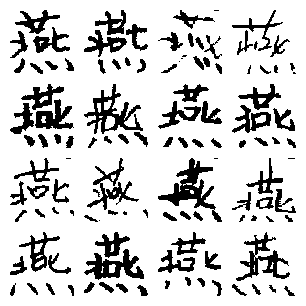 燕燕燕燕
燕燕燕燕
燕燕燕燕
燕燕燕燕